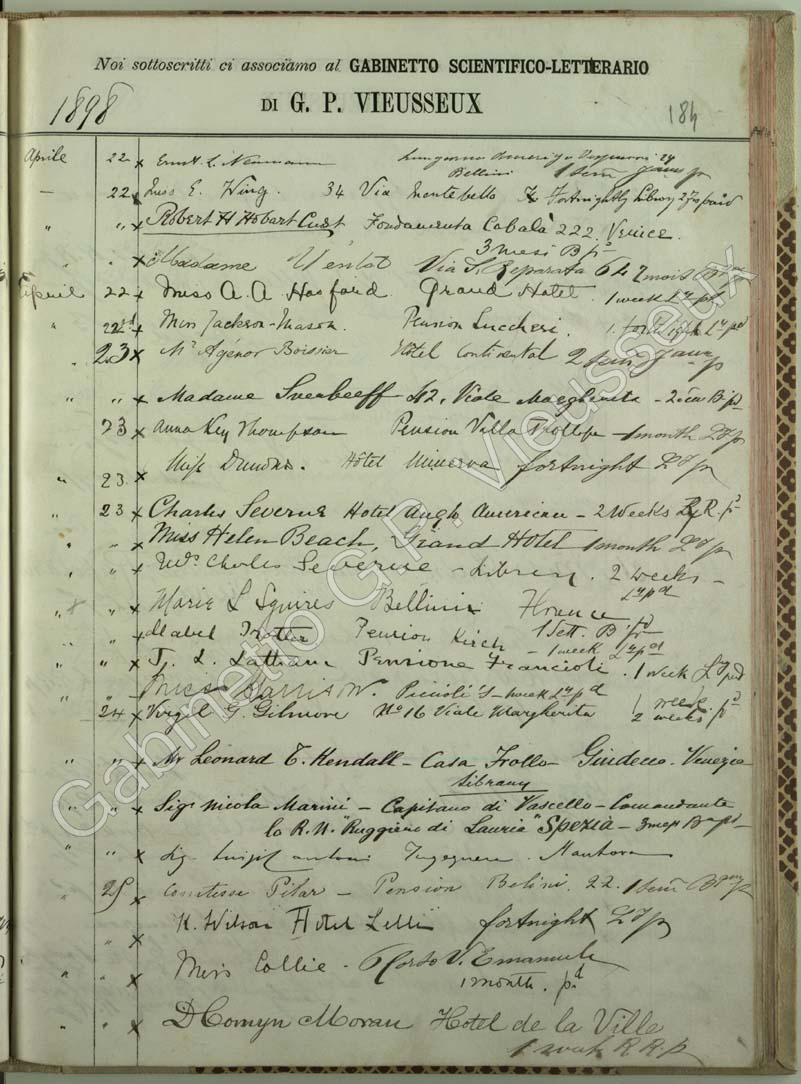 Noi sottoscritti ci associamo al GABINETTO SCIENTIFICO-LETTERARIO
DI G. P. VIEUSSEUX
1898
184
Aprile 22 x Ernst L. Neumann Lungarno Amerigo Vespucci 24
Bellini 1 Sem
— 22 x Miss E. Wing. 34 Via Montebello Fortnightly Library 2 f paid
" " x Robert H Hobart Cust Fondamenta Cabalà 222. Venice.
3 mesi B pd
" x Madame Via S. Reparata 2 mois
April 22 x Miss A. A. Hosford. Grand Hotel. 1 week Ly pd
" 22d x Miss Jackson-Mason. Pension Luccheri. 1 fortnight Ly pd
23 x Mr Agénor Boissier Hôtel Continental 2 p
" " x Madame 42, Viale Margherita - 2 B pd
" 23 x Anna Key Thompson Pension Villa Trollope - 1 month Ly p
" 23. x Miss Hôtel Minerva fortnight Ly p
" 23 x Charles Severne Hotel Anglo American - 2 Weeks R. R. pd
" " x Miss Helen Beach, Grand Hotel 1 month Ly p
" " x Mrs Charles Severne - Library. 2 weeks -
Ly pd
" " x Marie L Squires Bellini Florence
" " x Mabel Trotter Pension Kirch 1 Sett. B pd
- 1 week Ly pd
" " x T. L. Latham Pensione Francioli. 1 week Ly pd
" " Miss Harris W. Piccioli's - week Ly pd
" 24 x Virgil G. Gilmore No 16 Viale Margherita 1 week
2 weeks pd
" " x Mr Leonard T. Kendall - Casa Frollo - Giudecca - Venezia
Library
" " x Sigr Nicola Marini - Capitano di Vascello - Comandante
la R. N. "Ruggiero di Lauria" Spezia - 3 mesi B pd
" " x Sig. Luigi Ingegnere Mantova
" 25 x Comtesse Pilar - Pension Belini. 22. 1 Sem
" x K. Wilson Hotel Lelli fortnight Ly p
" " x Miss Collie - 6 Corso V. Emanuele
1 month. pd
" " x D Comyn Moran Hotel de la Ville
1 week R. R. p
Gabinetto G.P. Vieusseux